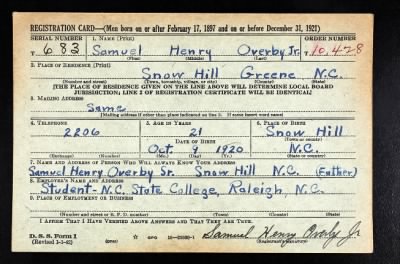 REGISTRATION CARD—(Men born on or after February 17, 1897 and on or before December 31, 1921)
SERIAL NUMBER 1. NAME (Print) ORDER NUMBER
T 683 Samuel Henry Overby Jr. T 10,428
(First) (Middle) (Last)
2. PLACE OF RESIDENCE (Print)
Snow Hill Greene N.C.
(Number and street) (Town, township, village, or city) (County) (State)
[THE PLACE OF RESIDENCE GIVEN ON THE LINE ABOVE WILL DETERMINE LOCAL BOARD
JURISDICTION; LINE 2 OF REGISTRATION CERTIFICATE WILL BE IDENTICAL]
3. MAILING ADDRESS
Same
[Mailing address if other than place indicated on line 2. If same insert word same]
4. TELEPHONE 5. AGE IN YEARS 6. PLACE OF BIRTH
2206 21 Snow Hill
DATE OF BIRTH (Town or county)
Oct 9 1920 N.C.
(Exchange) (Number) (Mo.) (Day) (Yr.) (State or country)
7. NAME AND ADDRESS OF PERSON WHO WILL ALWAYS KNOW YOUR ADDRESS
Samuel Henry Overby Sr. Snow Hill N.C. (Father)
8. EMPLOYER'S NAME AND ADDRESS
Student-N.C. State College, Raleigh, N.C.
9. PLACE OF EMPLOYMENT OR BUSINESS
(Number and street or R. F. D. number) (Town) (County) (State)
I AFFIRM THAT I HAVE VERIFIED ABOVE ANSWERS AND THAT THEY ARE TRUE.
D. S. S. Form 1
(Revised 1-1-42) (over) Samuel Henry Overby Jr
(Registrant's signature)